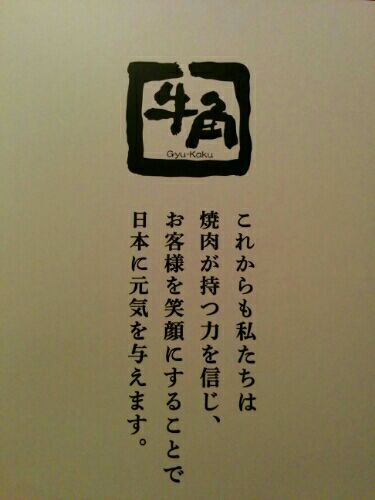 牛角
Gyu-Kaku
これからも私たちは
焼肉が持つ力を信じ、
お客様を笑顔にすることで
日本に元気を与えます。